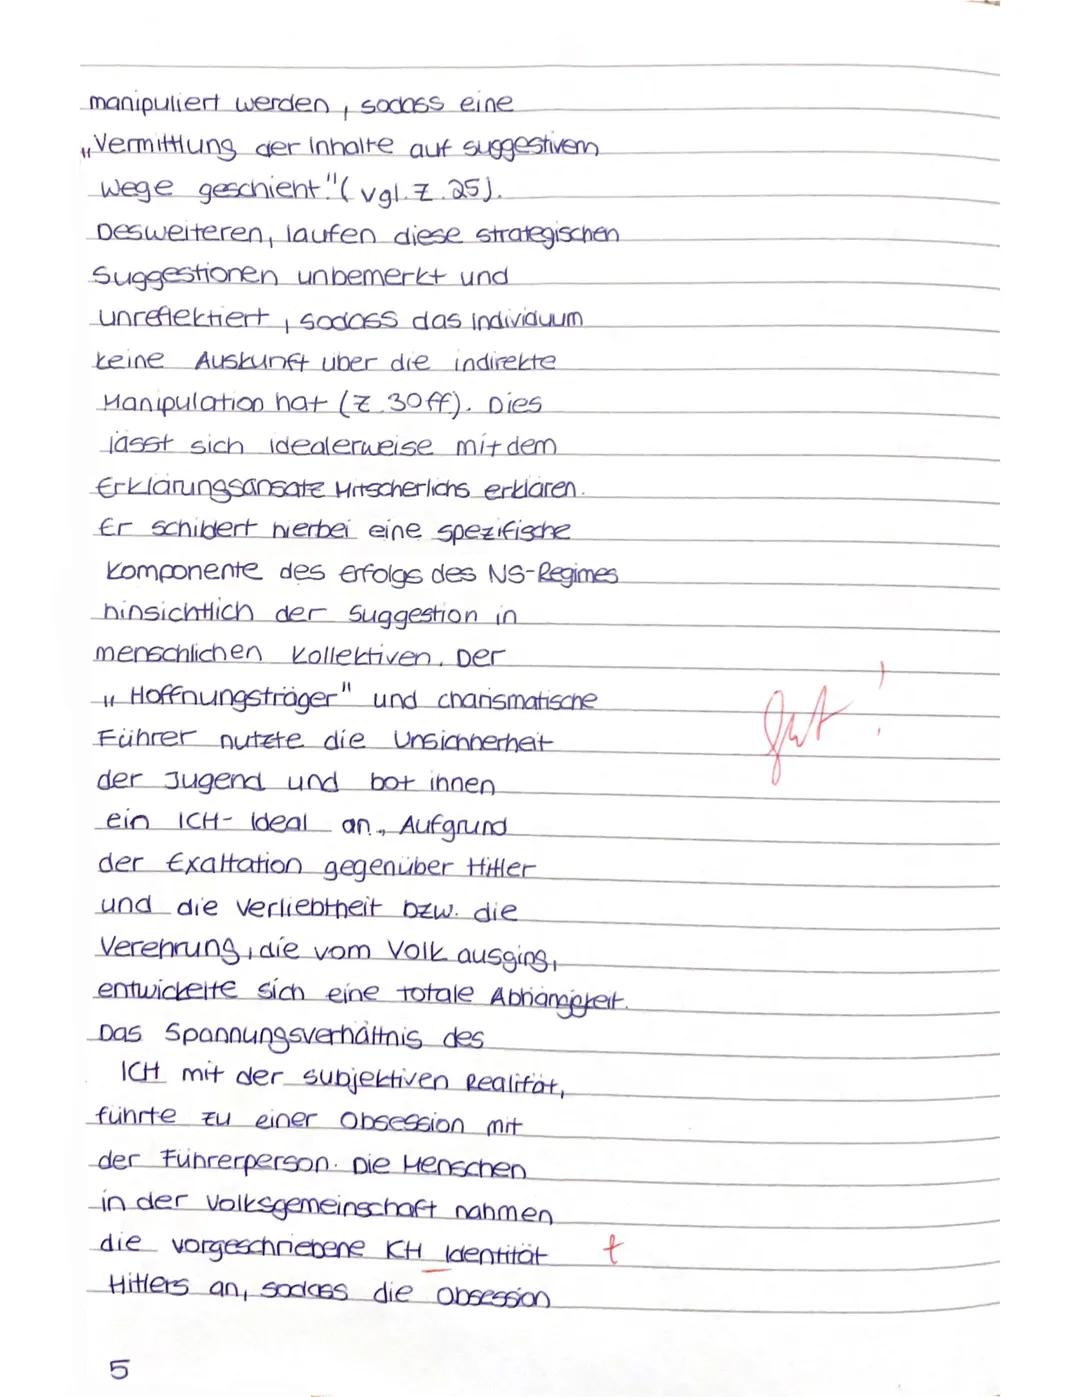 manipuliert werden, sodass eine
„Vermittlung der Inhalte auf suggestivem
Wege geschieht."(vgl. Z. 25).
Desweiteren, laufen diese strategischen
Suggestionen unbemerkt und
unreflektiert, sodass das Individuum
keine Auskunft über die indirekte
Manipulation hat (Z. 30ff). Dies
lässt sich idealerweise mit dem
Erklärungsansatz Mitscherlichs erklären.
Er schildert hierbei eine spezifische
Komponente des Erfolgs des NS-Regimes
hinsichtlich der Suggestion in
menschlichen Kollektiven. Der
„Hoffnungsträger" und charismatische
Führer nutzte die Unsichherheit
gut!
der Jugend und bot ihnen
ein ICH-Ideal an. Aufgrund
der Exaltation gegenüber Hitler
und die Verliebtheit bzw. die
Verehrung, die vom Volk ausging,
entwickelte sich eine totale Abhängigkeit.
Das Spannungsverhältnis des
ICH mit der subjektiven Realität,
führte zu einer Obsession mit
der Führerperson. Die Menschen
in der Volksgemeinschaft nahmen
die vorgeschriebene ICH Identität
Hitlers an, sodass die Obsession
5